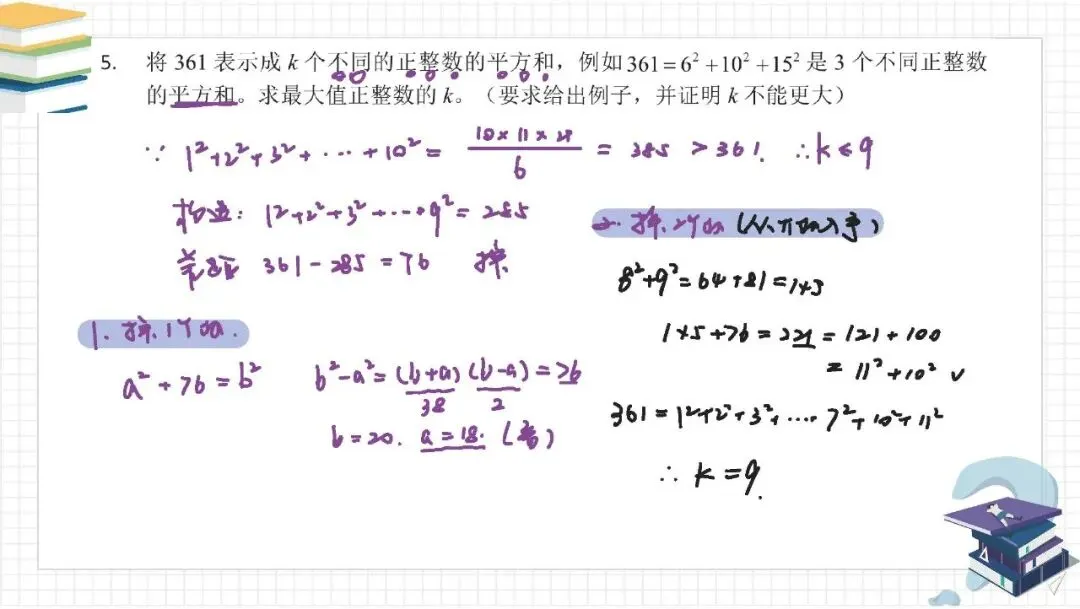 5. 将 361 表示成 k 个不同的正整数的平方和，例如 361 = 6² + 10² + 15² 是 3 个不同正整数
的平方和。求最大值正整数的 k。（要求给出例子，并证明 k 不能更大）
∵ 1²+2²+3²+⋯+10² = (10×11×21)/6 = 385 > 361. ∴ k ≤ 9
构造: 1²+2²+3²+⋯+9² = 285
差距 361-285=76 换
1. 换1个数.
a²+76=b²
b²-a²=(b+a)(b-a)=76
38 2
b=20. a=18. (舍)
2. 换2个数 (从大的入手)
8²+9²=64+81=145
145+76=221=121+100
=11²+10² ✓
361=1²+2²+3²+⋯7²+10²+11²
∴ k=9.